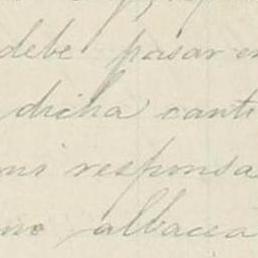 debe pasar en
dicha canti
mi responsa
no albacea